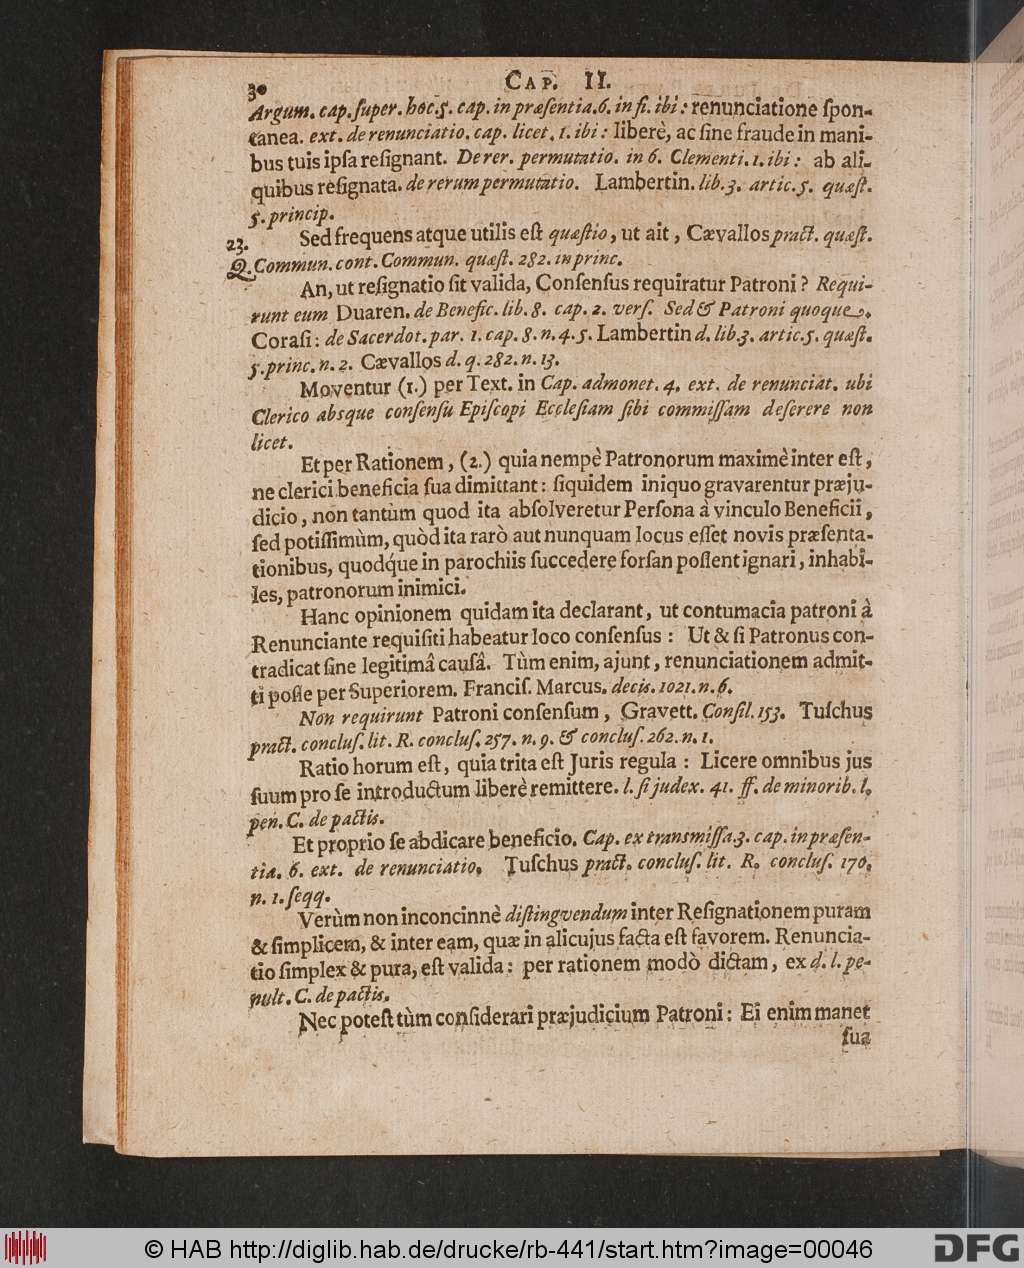 30
CAP. II.
Argum. cap. ſuper. hoc. 5. cap. in præſentia. 6. in fi. ibi: renunciatione ſpon-
tanea. ext. de renunciatio. cap. licet. 1. ibi: liberè, ac ſine fraude in mani-
bus tuis ipſa reſignant. De rer. permutatio. in 6. Clementi. 1. ibi: ab ali-
quibus reſignata. de rerum permutatio. Lambertin. lib. 3. artic. 5. quæſt.
5. princip.
23. Sed frequens atque utilis eſt quæſtio, ut ait, Cævallos pract. quæſt.
Q. Commun. cont. Commun. quæſt. 282. in princ.
An, ut reſignatio ſit valida, Conſenſus requiratur Patroni? Requi-
runt eum Duaren. de Benefic. lib. 8. cap. 2. verſ. Sed & Patroni quoque.
Coraſi: de Sacerdot. par. 1. cap. 8. n. 4. 5. Lambertin d. lib. 3. artic. 5. quæſt.
5. princ. n. 2. Cævallos d. q. 282. n. 13.
Moventur (1.) per Text. in Cap. admonet. 4. ext. de renunciat. ubi
Clerico absque conſenſu Epiſcopi Eccleſiam ſibi commiſſam deſerere non
licet.
Et per Rationem, (2.) quia nempè Patronorum maximè inter eſt,
ne clerici beneficia ſua dimittant: ſiquidem iniquo gravarentur præju-
dicio, non tantùm quod ita abſolveretur Perſona à vinculo Beneficii,
ſed potiſſimùm, quòd ita rarò aut nunquam locus eſſet novis præſenta-
tionibus, quodq́ue in parochiis ſuccedere forſan poſſent ignari, inhabi-
les, patronorum inimici.
Hanc opinionem quidam ita declarant, ut contumacia patroni à
Renunciante requiſiti habeatur loco conſenſus: Ut & ſi Patronus con-
tradicat ſine legitimâ cauſâ. Tùm enim, ajunt, renunciationem admit-
ti poſſe per Superiorem. Franciſ. Marcus. decis. 1021. n. 6.
Non requirunt Patroni conſenſum, Gravett. Conſil. 153. Tuſchus
pract. concluſ. lit. R. concluſ. 257. n. 9. & concluſ. 262. n. 1.
Ratio horum eſt, quia trita eſt Juris regula: Licere omnibus jus
ſuum pro ſe introductum liberè remittere. l. ſi judex. 41. ff. de minorib. l.
pen. C. de pactis.
Et proprio ſe abdicare beneficio. Cap. ex transmiſſa. 3. cap. in præſen-
tia. 6. ext. de renunciatio, Tuſchus pract. concluſ. lit. R. concluſ. 170.
n. 1. ſeqq.
Verùm non inconcinnè diſtingvendum inter Reſignationem puram
& ſimplicem, & inter eam, quæ in alicujus facta eſt favorem. Renuncia-
tio ſimplex & pura, eſt valida: per rationem modò dictam, ex d. l. pe-
nult. C. de pactis.
Nec poteſt tùm conſiderari præjudicium Patroni: Ei enim manet
ſua
© HAB http://diglib.hab.de/drucke/rb-441/start.htm?image=00046
DFG